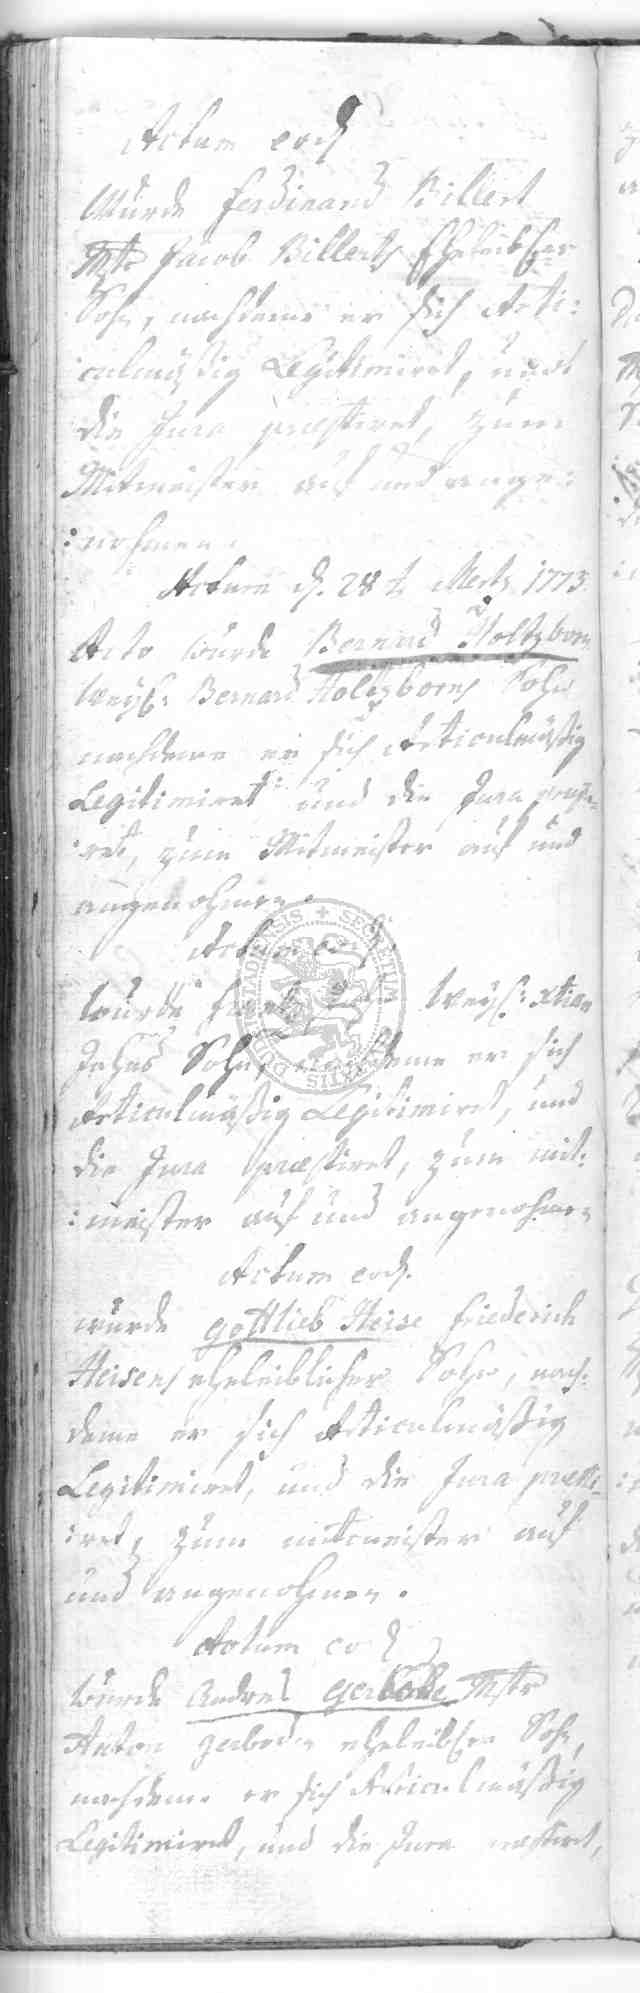 Actum eod
Wurde Ferdinand Billert
Mstr Jacob Billerts Eheleibler
Sohn, nachdeme er sich Arti:
:culmäßig Legitimiret, und
die Jura præstiret, zum
Mitmeister auf und ange:
:nohmen.
Actum d. 28t Mertz 1773
Acto wurde Bernard Holtzborn
Weyl: Bernard Holtzborns Sohn
nachdeme er sich Articulmäßig
Legitimiret und die Jura præsti-
:ret, zum Mitmeister auf und
angenohmen.
Actum eod.
Wurde Weyl: Xtian
Sohn, nachdeme er sich
Articulmäßig Legitimiret, und
die Jura præstiret, zum mit:
:meister auf und angenohmen
Actum eod.
wurde Gottlieb Heise Friederich
Heisens eheleiblicher Sohn, nach:
deme er sich Articulmäßig
Legitimiret, und die Jura præsti-
:ret, zum mitmeister auf
und angenohmen.
Actum eod
wurde Andres Gerbode Mstr
Anton Gerboden eheleibler Sohn,
nachdeme er sich Articulmäßig
Legitimiret, und die Jura præstiret,
SECRETUM